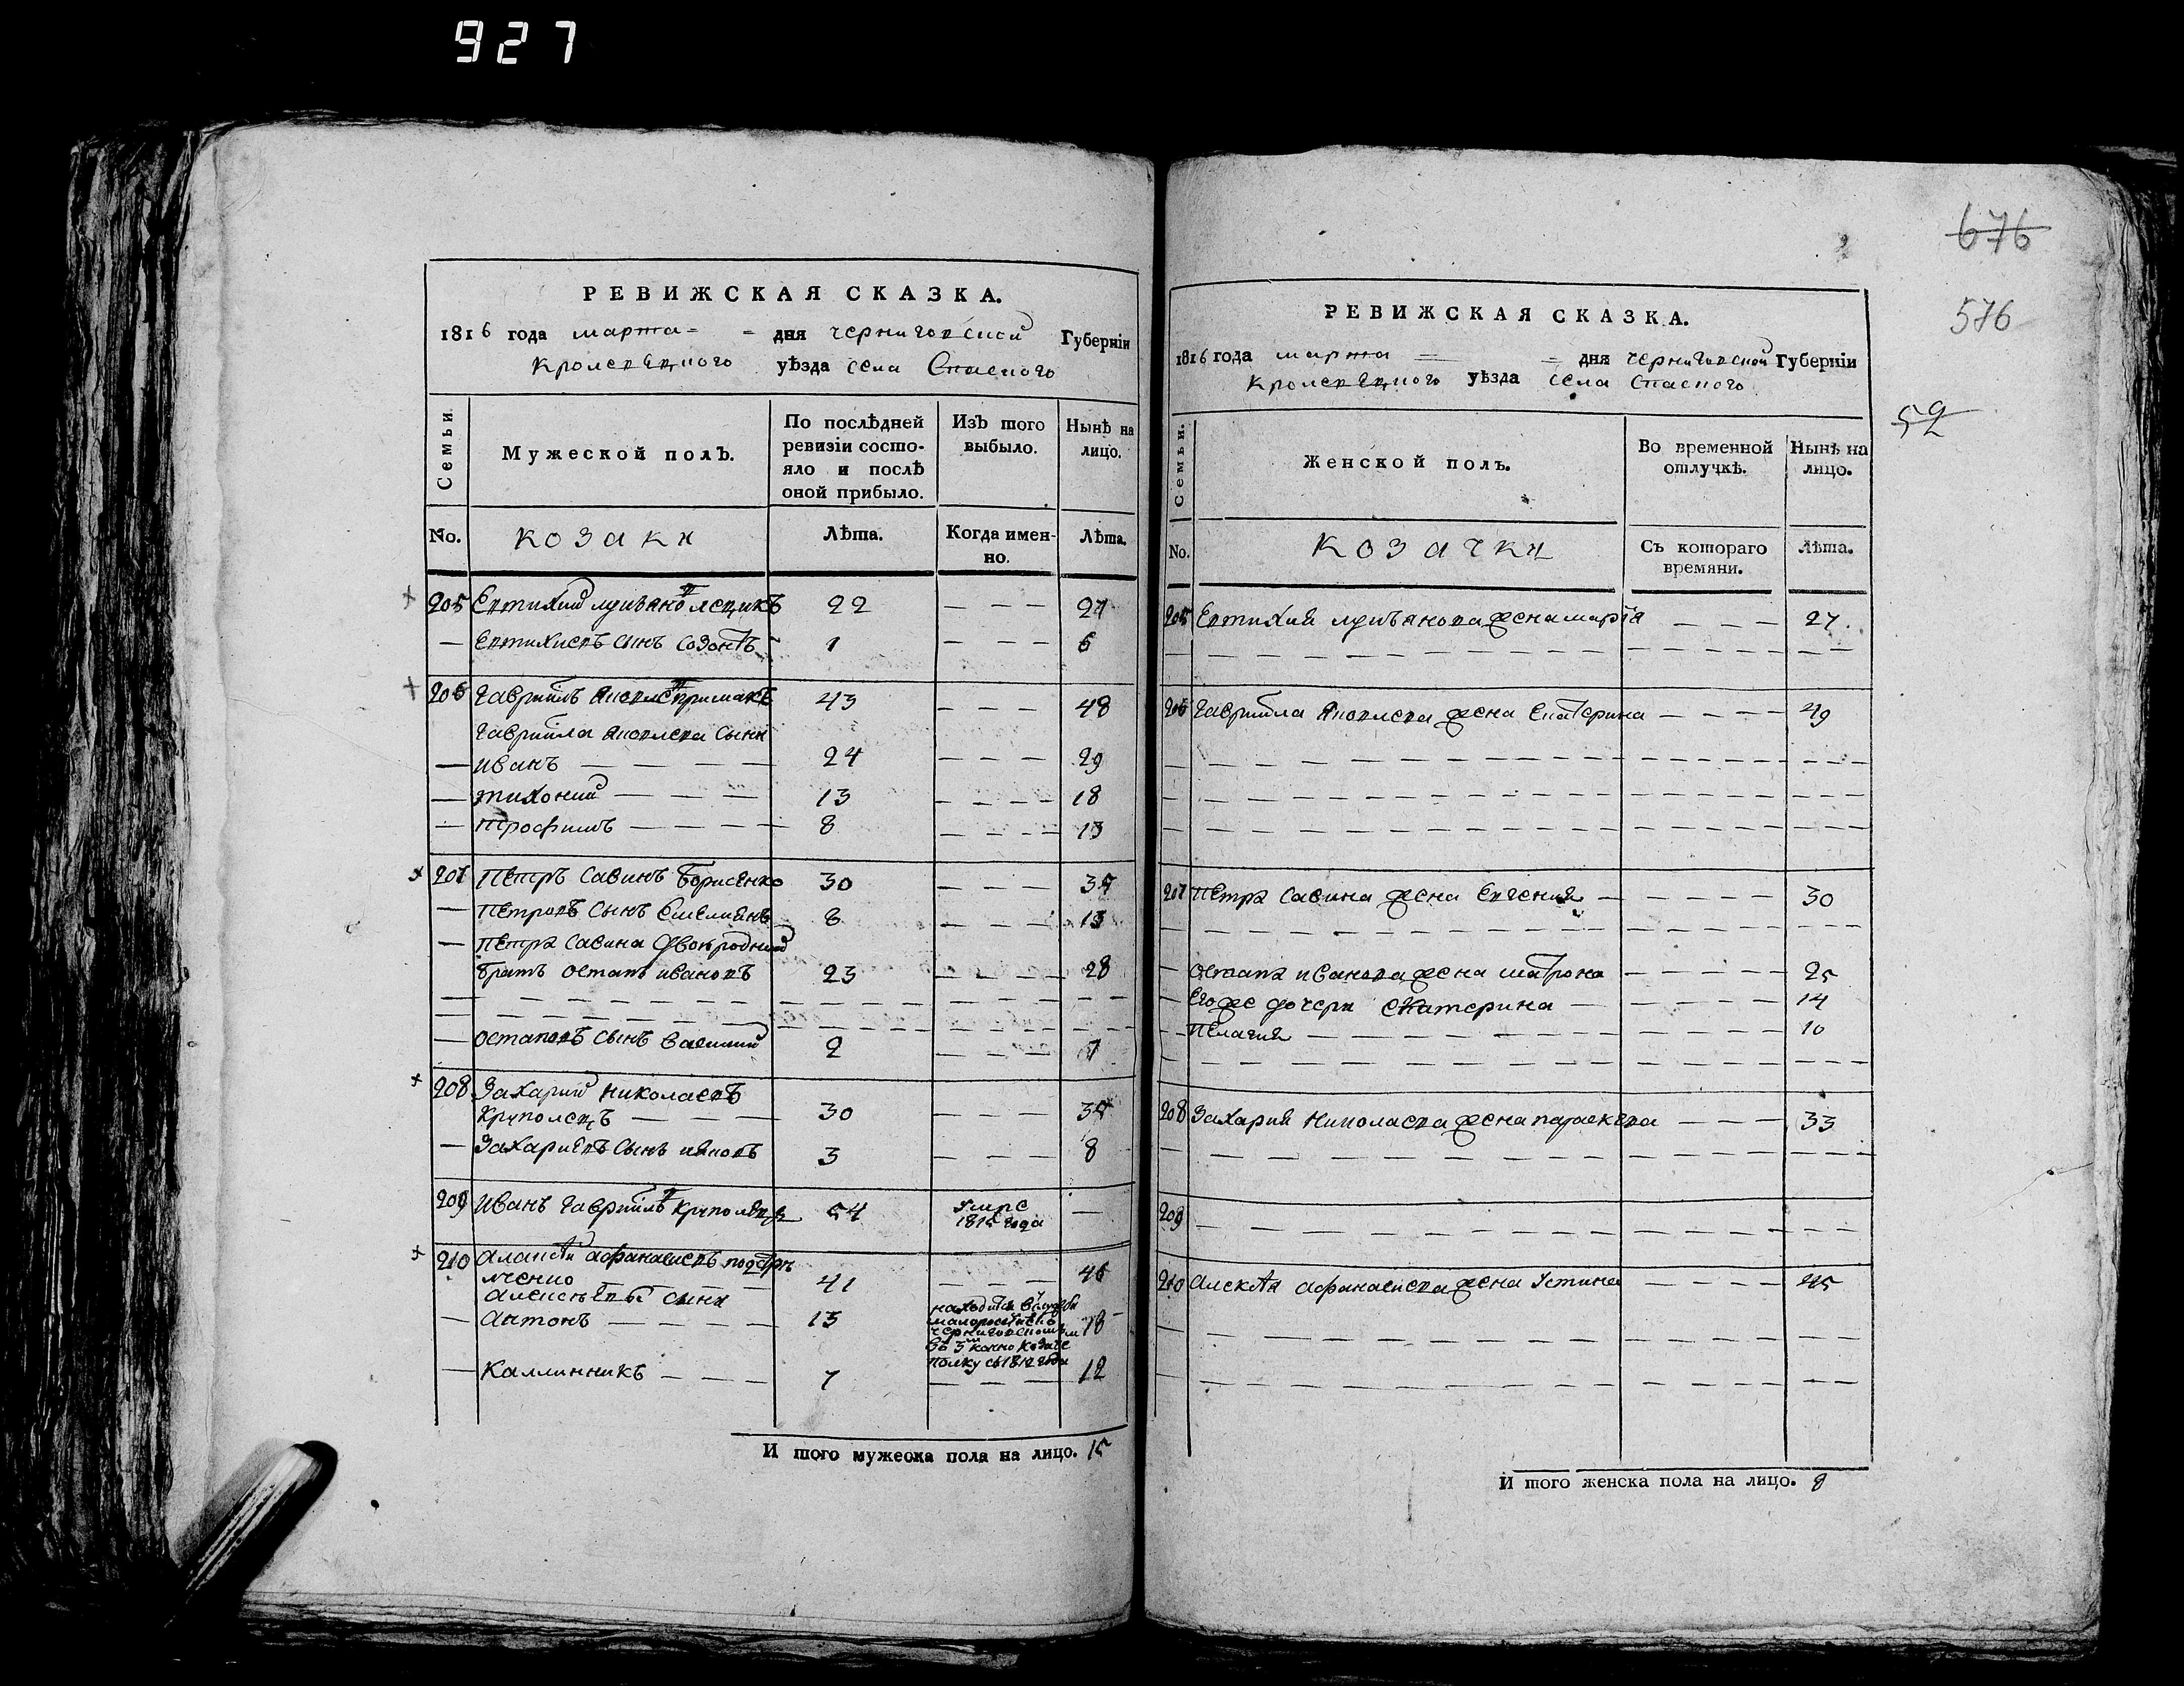 927
РЕВИЖСКАЯ СКАЗКА.
1816 года марта дня черниговской Губерніи
Кролевецкого уѣзда села Спаского
Семьи.
Мужеской полъ.
По послѣдней ревизіи состояло и послѣ оной прибыло.
Изъ того выбыло.
Нынѣ на лицо.
No. козаки Лѣта. Когда именно. Лѣта.
205 Евтихий 22 27
Евтихиевъ сынъ Созонтъ 1 6
206 Гавриилъ Яковлевъ примакъ 43 48
Гавриила Яковлева сыны
Иванъ 24 29
тихоний 13 18
трофимъ 8 13
207 Петръ Савинъ Борисенко 30 35
Петровъ сынъ Емелиянъ 8 13
Петра Савина двоюродний
братъ Остапъ ивановъ 23 28
Остаповъ сынъ Василий 2 7
208 Захарий Николаевъ
Круполецъ 30 35
Захариевъ сынъ 3 8
209 Иванъ Гавриилъ 54 Умре
1815 года
210 Афанасиевъ
41 46
сыны
Антонъ 13 находится в службе
18
полку съ 1812 года
Каллинникъ 7 12
И того мужеска пола на лицо. 15
676
576
52
РЕВИЖСКАЯ СКАЗКА.
1816 года марта дня черниговской Губерніи
Кролевецкого уѣзда села Спаского
Семьи.
Женской полъ.
Во временной отлучкѣ.
Нынѣ на лицо.
No. козачки Съ котораго времяни. Лѣта.
205 Евтихия жена мария 27
206 Гавриила Яковлева жена Екатерина 49
207 Петра Савина жена Евгения 30
Остапа иванова жена матрона 25
Его же дочери екатерина 14
Пелагия 10
208 Захария Николаева жена параскева 33
209
210 Алексея Афанасиева жена Устиния 45
И того женска пола на лицо. 8